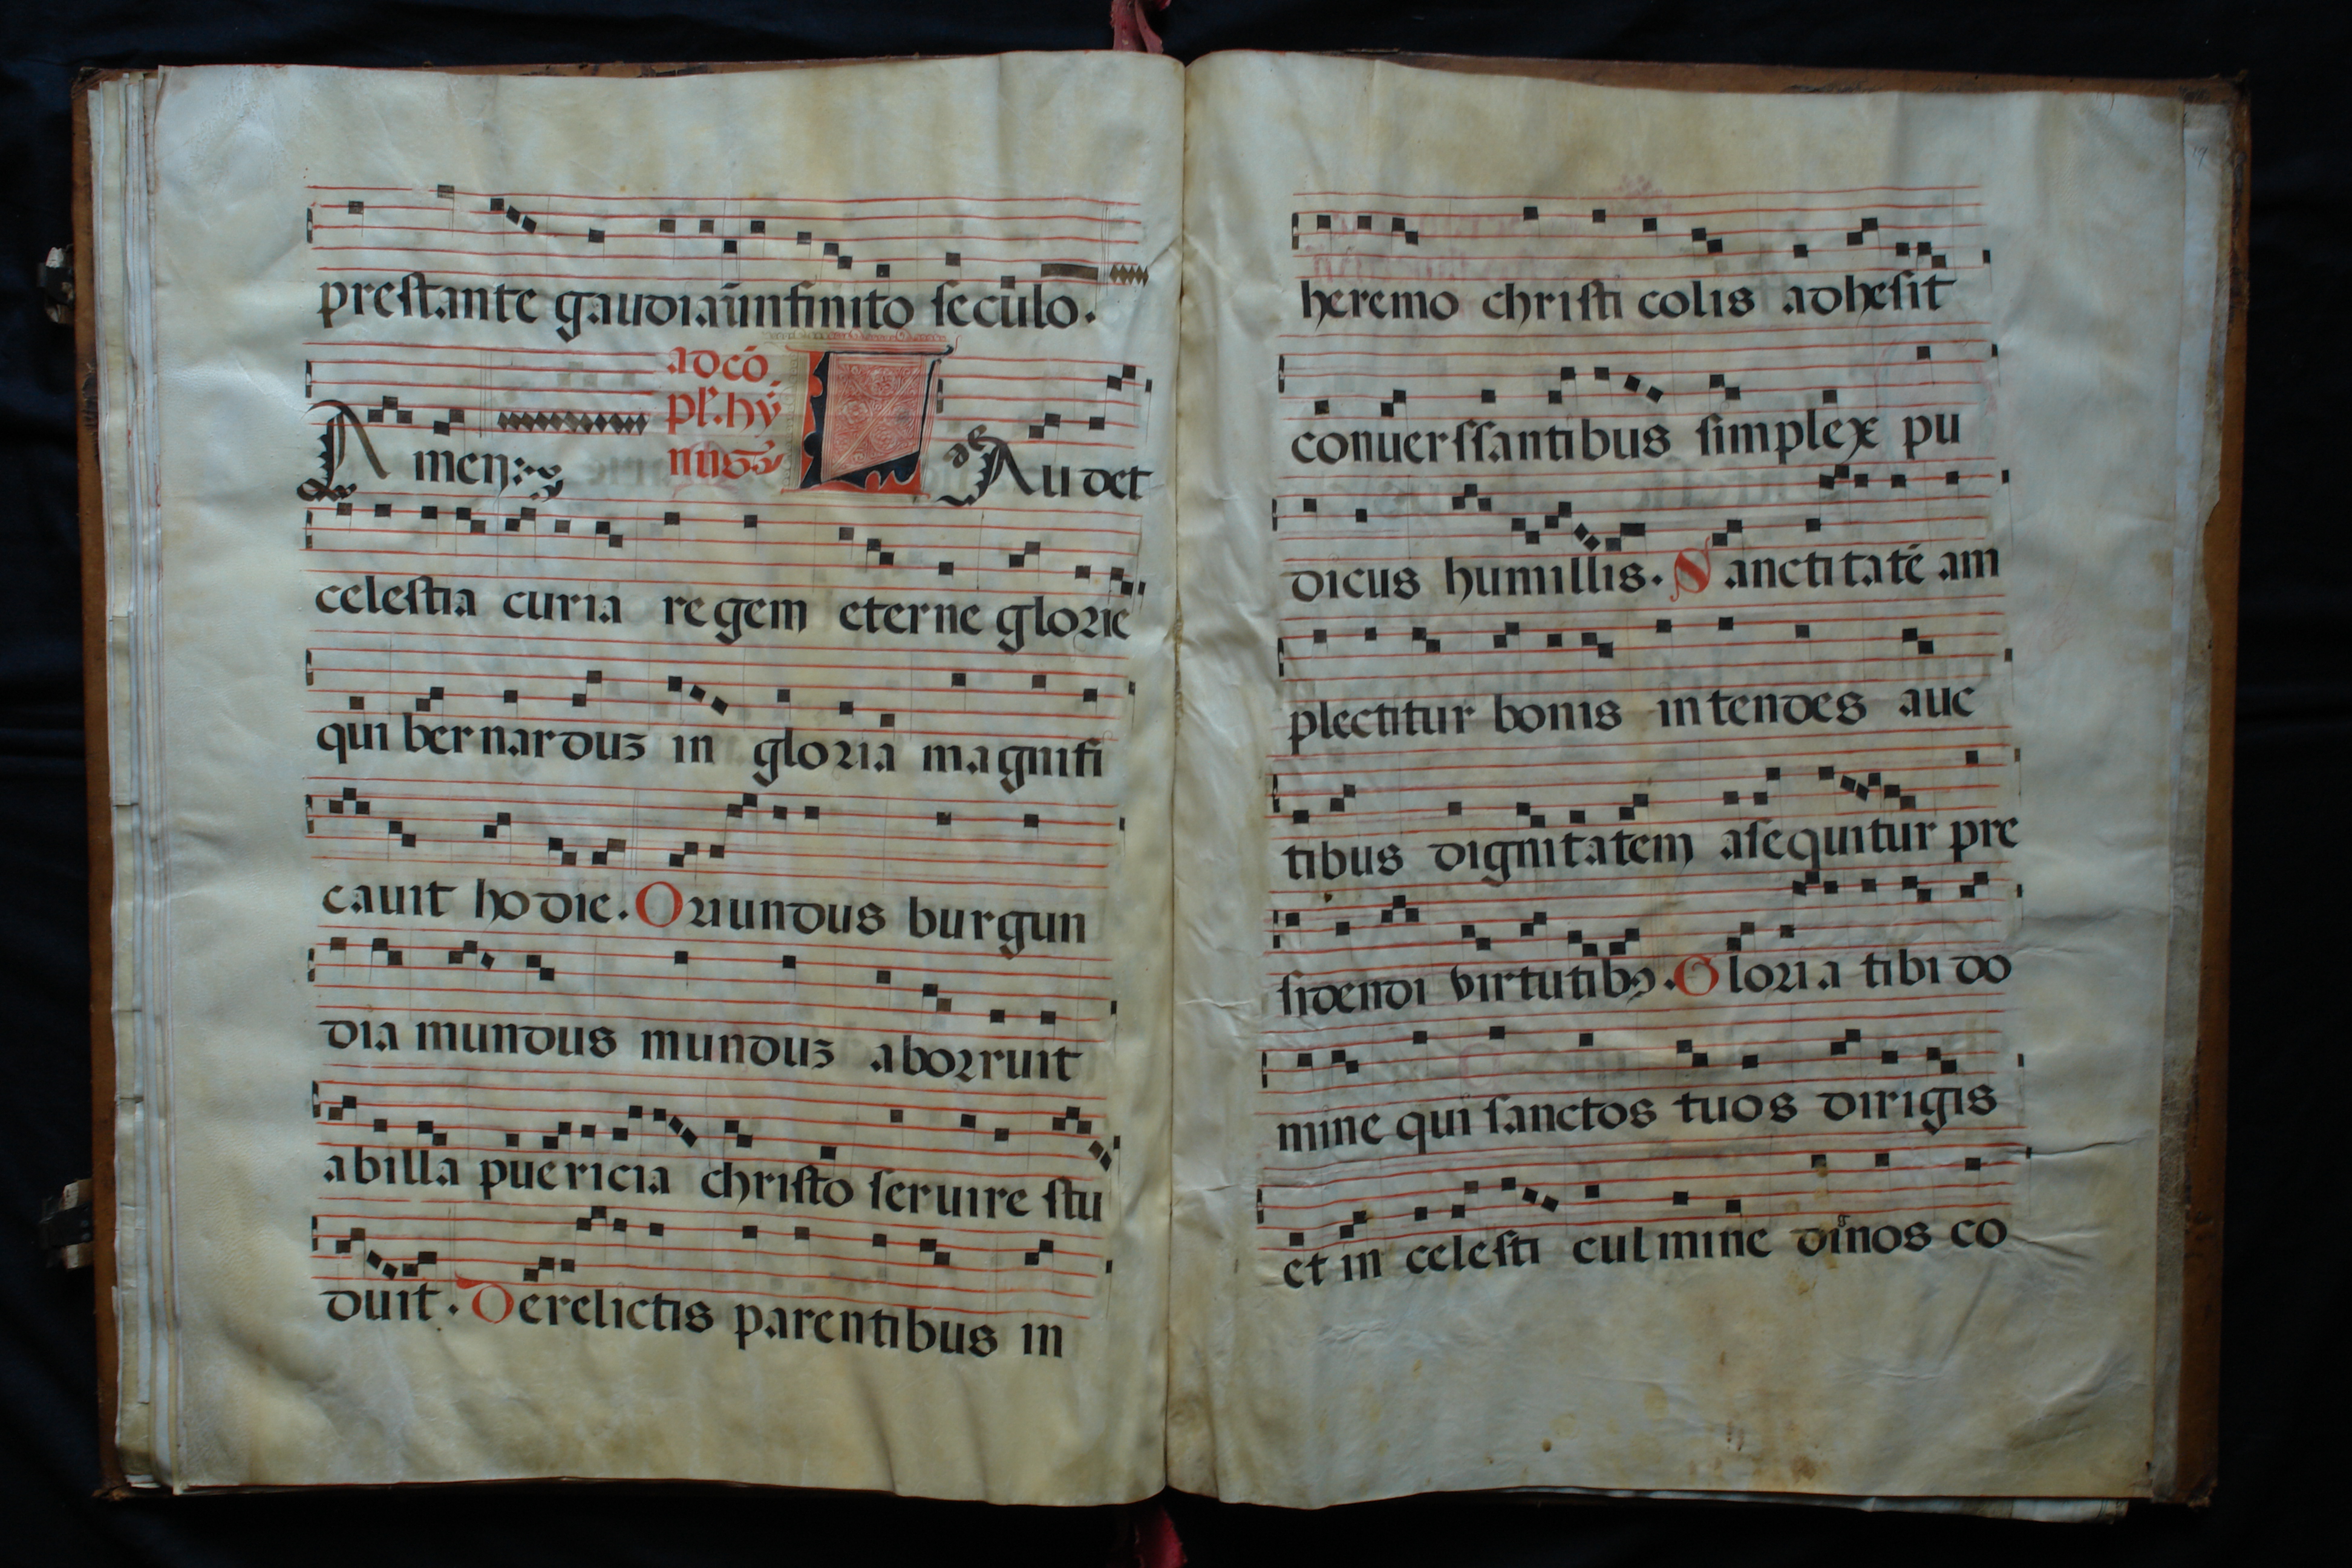 prestante gaudia ininfinito seculo.
Amen:
ad co
pl'. hy
nus
Laudet
celestia curia regem eterne glorie
qui bernarduz in gloria magnifi
cauit hodie. Oriundus burgun
dia mundus munduz aborruit
abilla puericia christo seruire stu
duit. Derelictis parentibus in
heremo christi colis adhesit
conuerssantibus simplex pu
dicus humillis. Sanctitatē am
plectitur bonis intendes auc
tibus dignitatem asequitur pre
sidendi virtutibꝰ. Gloria tibi do
mine qui sanctos tuos dirigis
et in celesti culmine dirnos co